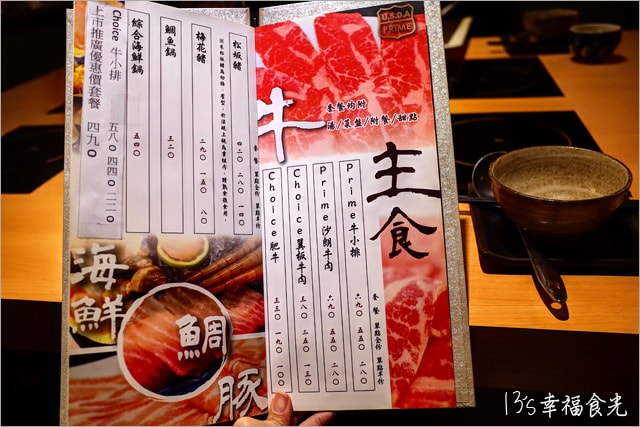 U.S.D.A
PRIME
主食
牛
套餐均附
湯/菜盤/附餐/甜點
套餐 單點全份 單點半份
Prime牛小排 六九〇 五五〇 二八〇
Prime沙朗牛肉 六九〇 五五〇 二八〇
Choice翼板牛肉 三八〇 二五〇 一三〇
Choice肥牛 三三〇 一九〇 一〇〇
套餐 單點全份 單點半份
松板豬 四二〇 二八〇 一四〇
梅花豬 二九〇 一五〇 八〇
鯛魚鍋 三二〇
綜合海鮮鍋 五四〇
Choice 牛小排 五八〇 四四〇 二二〇
上市推廣優惠價套餐 四九〇
海鮮
鯛
豚
13's幸福食光